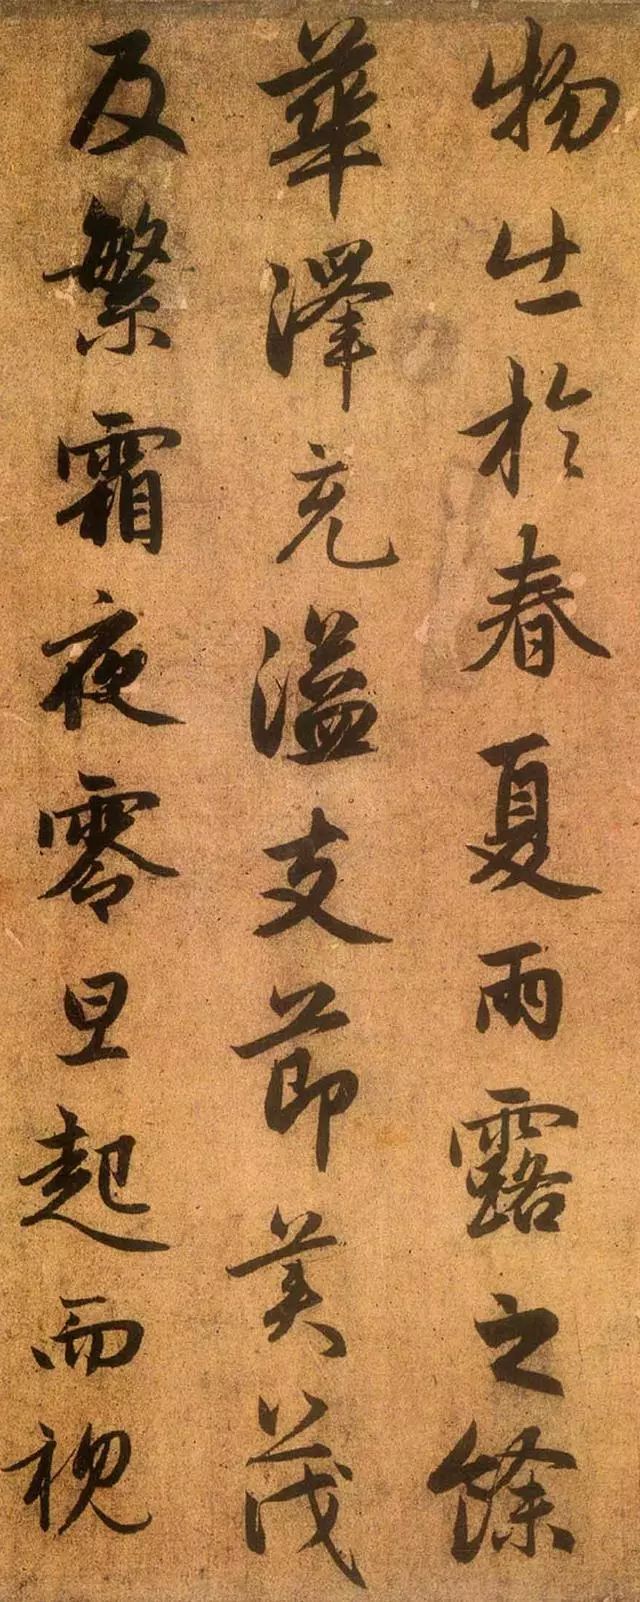 物生於春夏雨露之餘
華澤充溢支節美茂
及繁霜夜零旦起而視